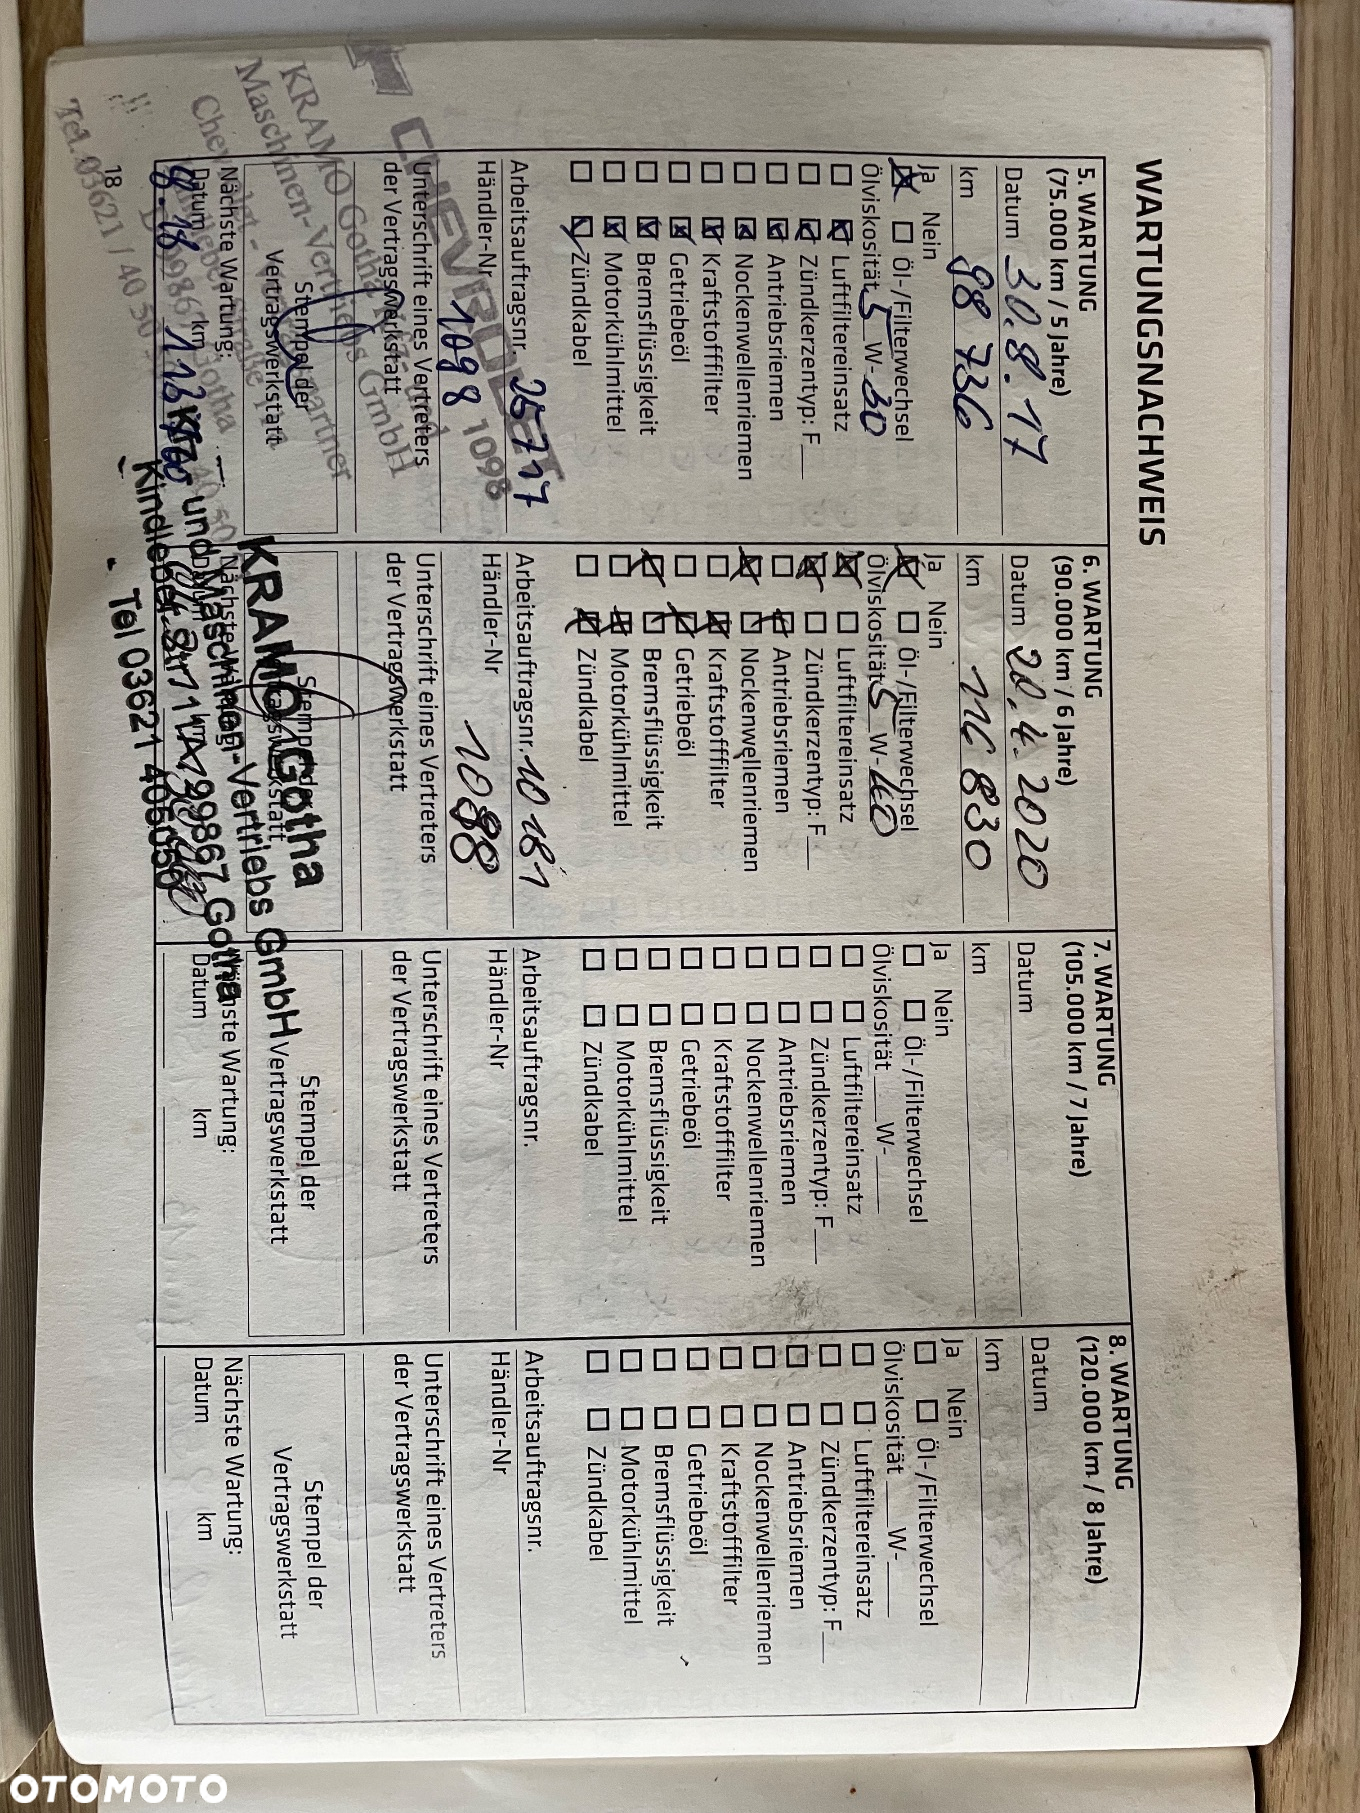 WARTUNGSNACHWEIS
5. WARTUNG
(75.000 km / 5 Jahre)
Datum 30.8.17
km 98 736
Ja Nein
Öl-/Filterwechsel
Ölviskosität 5 W- 30
Luftfiltereinsatz
Zündkerzentyp: F__
Antriebsriemen
Nockenwellenriemen
Kraftstofffilter
Getriebeöl
Bremsflüssigkeit
Motorkühlmittel
Zündkabel
Arbeitsauftragsnr. 25717
Händler-Nr 1098
Unterschrift eines Vertreters
der Vertragswerkstatt
Stempel der
Vertragswerkstatt
CHEVROLET 1098
KRAMO Gotha
Maschinen-Vertriebs GmbH
Tel. 03621 / 40 50
Nächste Wartung:
Datum km
8.18
6. WARTUNG
(90.000 km / 6 Jahre)
Datum 20.4.2020
km 116 830
Ja Nein
Öl-/Filterwechsel
Ölviskosität 5 W- 40
Luftfiltereinsatz
Zündkerzentyp: F__
Antriebsriemen
Nockenwellenriemen
Kraftstofffilter
Getriebeöl
Bremsflüssigkeit
Motorkühlmittel
Zündkabel
Arbeitsauftragsnr. 10181
Händler-Nr 1098
Unterschrift eines Vertreters
der Vertragswerkstatt
KRAMO Gotha
Kfz- und Maschinen-Vertriebs GmbH
Kindleber Str. 111A, 99867 Gotha
Tel 03621 405050
7. WARTUNG
(105.000 km / 7 Jahre)
Datum
km
Ja Nein
Öl-/Filterwechsel
Ölviskosität ___ W-___
Luftfiltereinsatz
Zündkerzentyp: F__
Antriebsriemen
Nockenwellenriemen
Kraftstofffilter
Getriebeöl
Bremsflüssigkeit
Motorkühlmittel
Zündkabel
Arbeitsauftragsnr.
Händler-Nr
Unterschrift eines Vertreters
der Vertragswerkstatt
Stempel der
Vertragswerkstatt
Nächste Wartung:
Datum km
8. WARTUNG
(120.000 km / 8 Jahre)
Datum
km
Ja Nein
Öl-/Filterwechsel
Ölviskosität ___ W-___
Luftfiltereinsatz
Zündkerzentyp: F__
Antriebsriemen
Nockenwellenriemen
Kraftstofffilter
Getriebeöl
Bremsflüssigkeit
Motorkühlmittel
Zündkabel
Arbeitsauftragsnr.
Händler-Nr
Unterschrift eines Vertreters
der Vertragswerkstatt
Stempel der
Vertragswerkstatt
Nächste Wartung:
Datum km
18
OTOMOTO